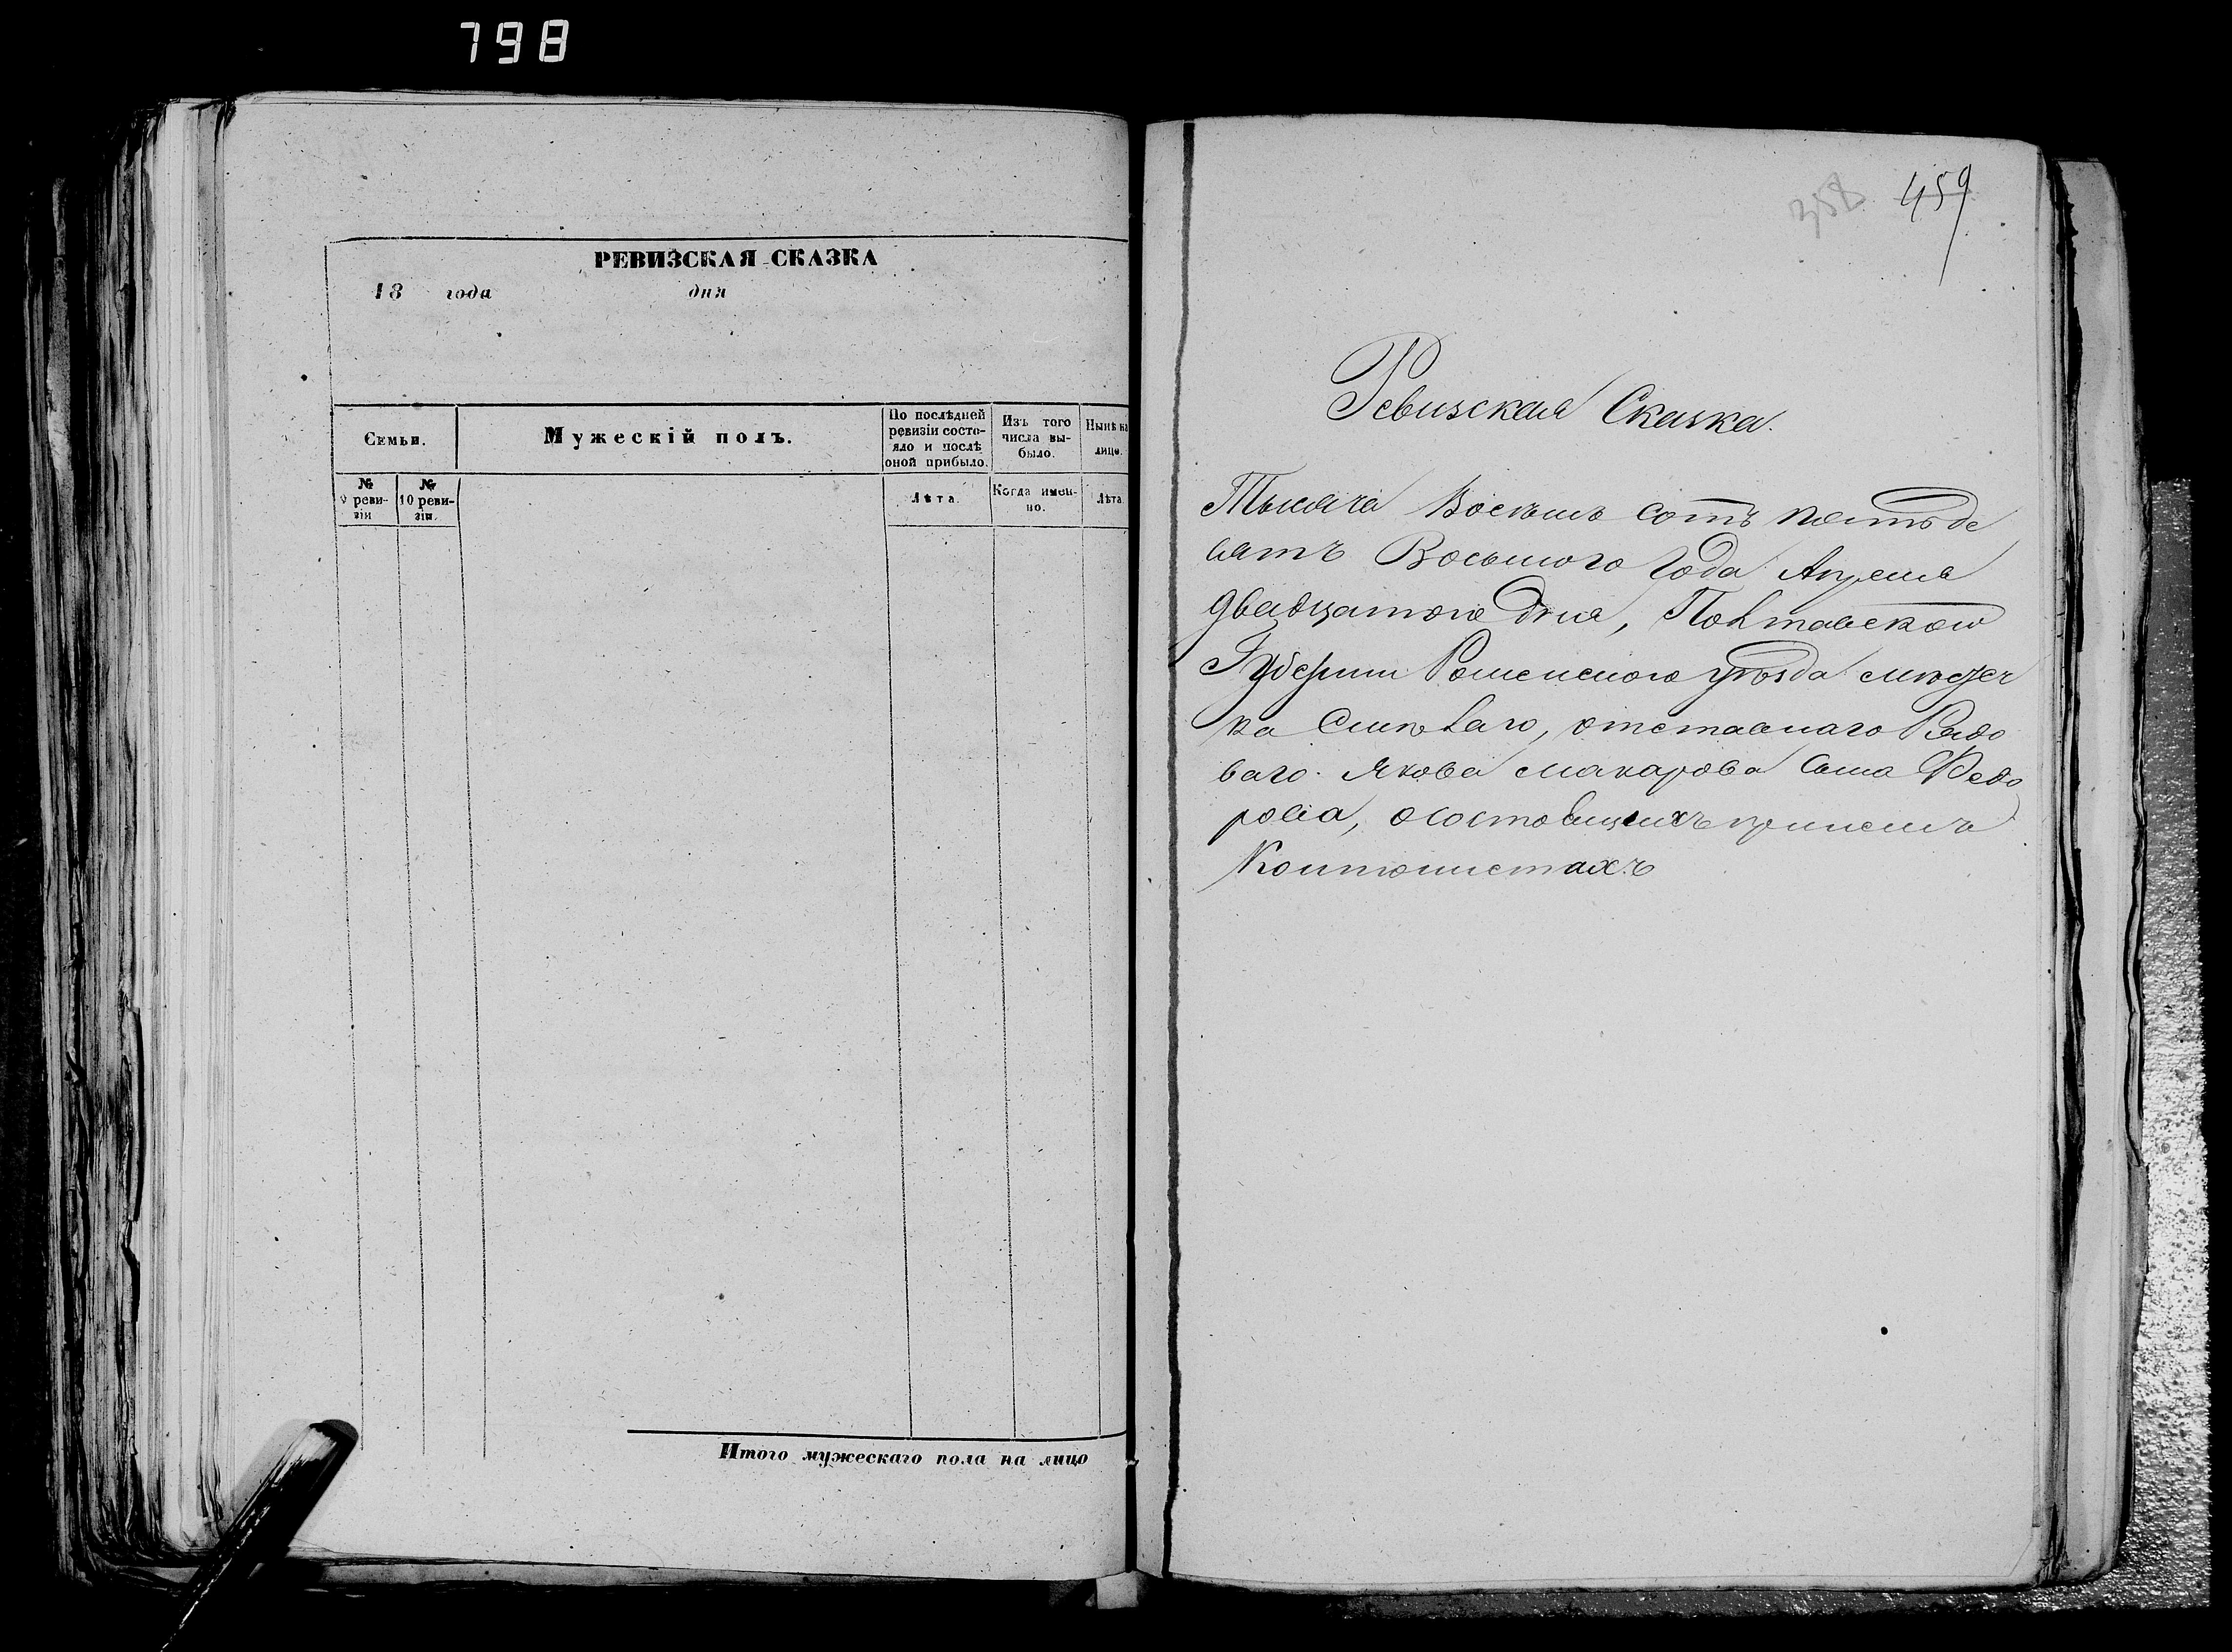 798
РЕВИЗСКАЯ СКАЗКА
18 года дня
Семьи.
Мужескій полъ.
По послѣдней ревизіи состо-
яло и послѣ
оной прибыло.
Изъ того
числа вы-
было.
Нынѣ на
лицо.
№
9 реви-
зіи
№
10 реви-
зіи.
Лѣта.
Когда имен-
но.
Лѣта
Итого мужескаго пола на лицо
358 459
Ревизская Сказка.
Тысяча Восемь сотъ пятьде
сятъ Восьмого Года Апреля
двадцатого дня, Полтавской
Губерніи Роменского уѣзда мѣстеч
ка Смѣлаго, отставнаго Рядо
ваго Якова Макарова Сына Федо
рова, о состоящихъ при немъ
Кантонистахъ